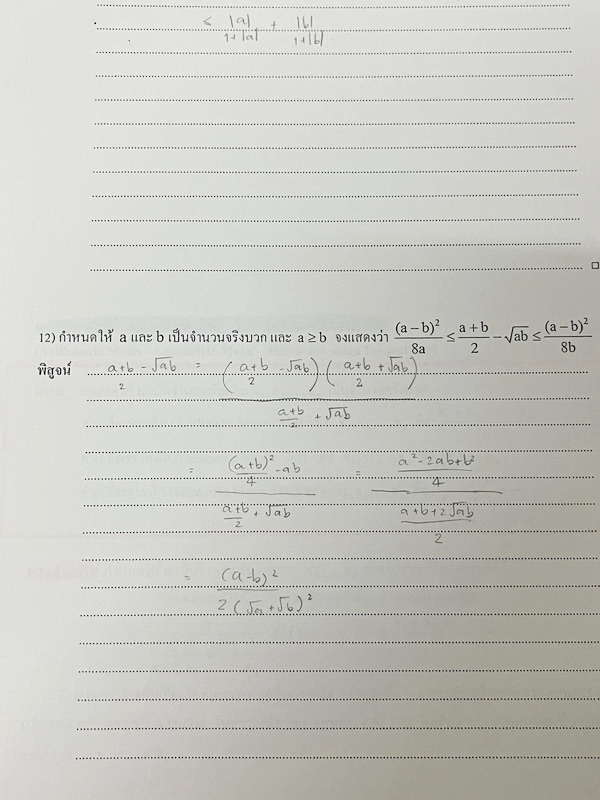 ≤ |a|/(1+|a|) + |b|/(1+|b|)
12) กำหนดให้ a และ b เป็นจำนวนจริงบวก และ a ≥ b จงแสดงว่า (a−b)²/8a ≤ (a+b)/2 − √ab ≤ (a−b)²/8b
พิสูจน์ (a+b)/2 − √ab = ((a+b)/2 − √ab)((a+b)/2 + √ab) / ((a+b)/2 + √ab)
= ((a+b)²/4 − ab) / ((a+b)/2 + √ab) = ((a²−2ab+b²)/4) / ((a+b+2√ab)/2)
= (a−b)² / 2(√a+√b)²